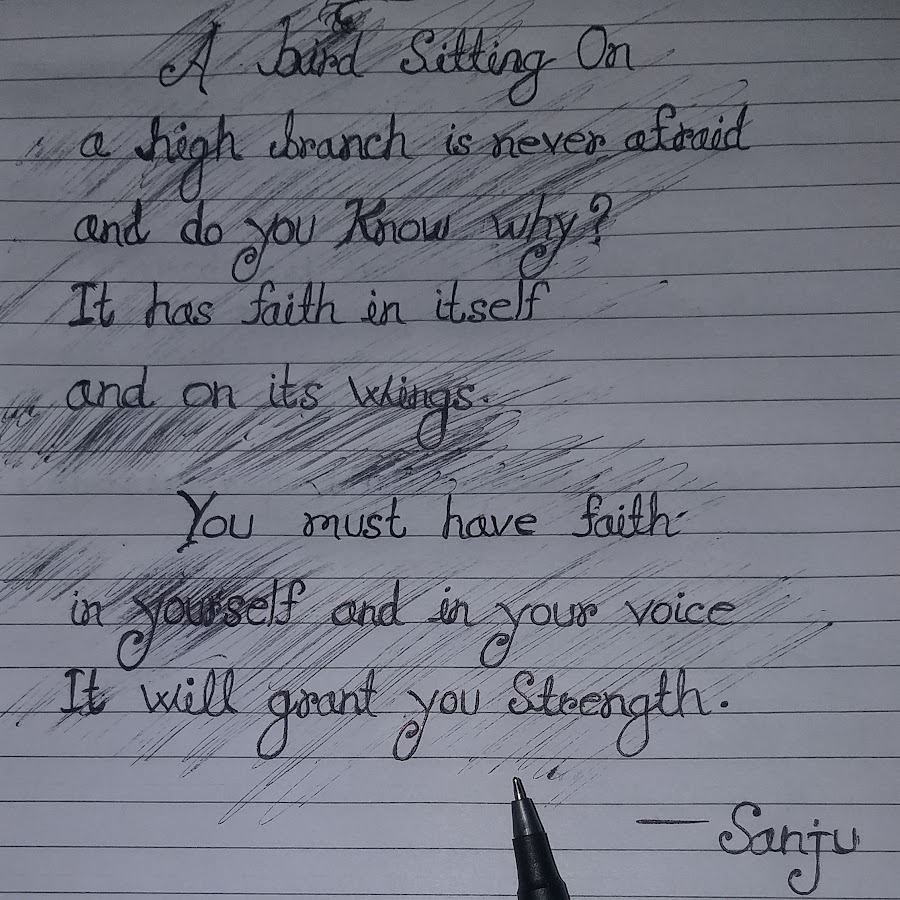 A bird Sitting On
a high branch is never afraid
and do you Know why?
It has faith in itself
and on its wings.
You must have faith
in yourself and in your voice
It will grant you Strength.
— Sanju